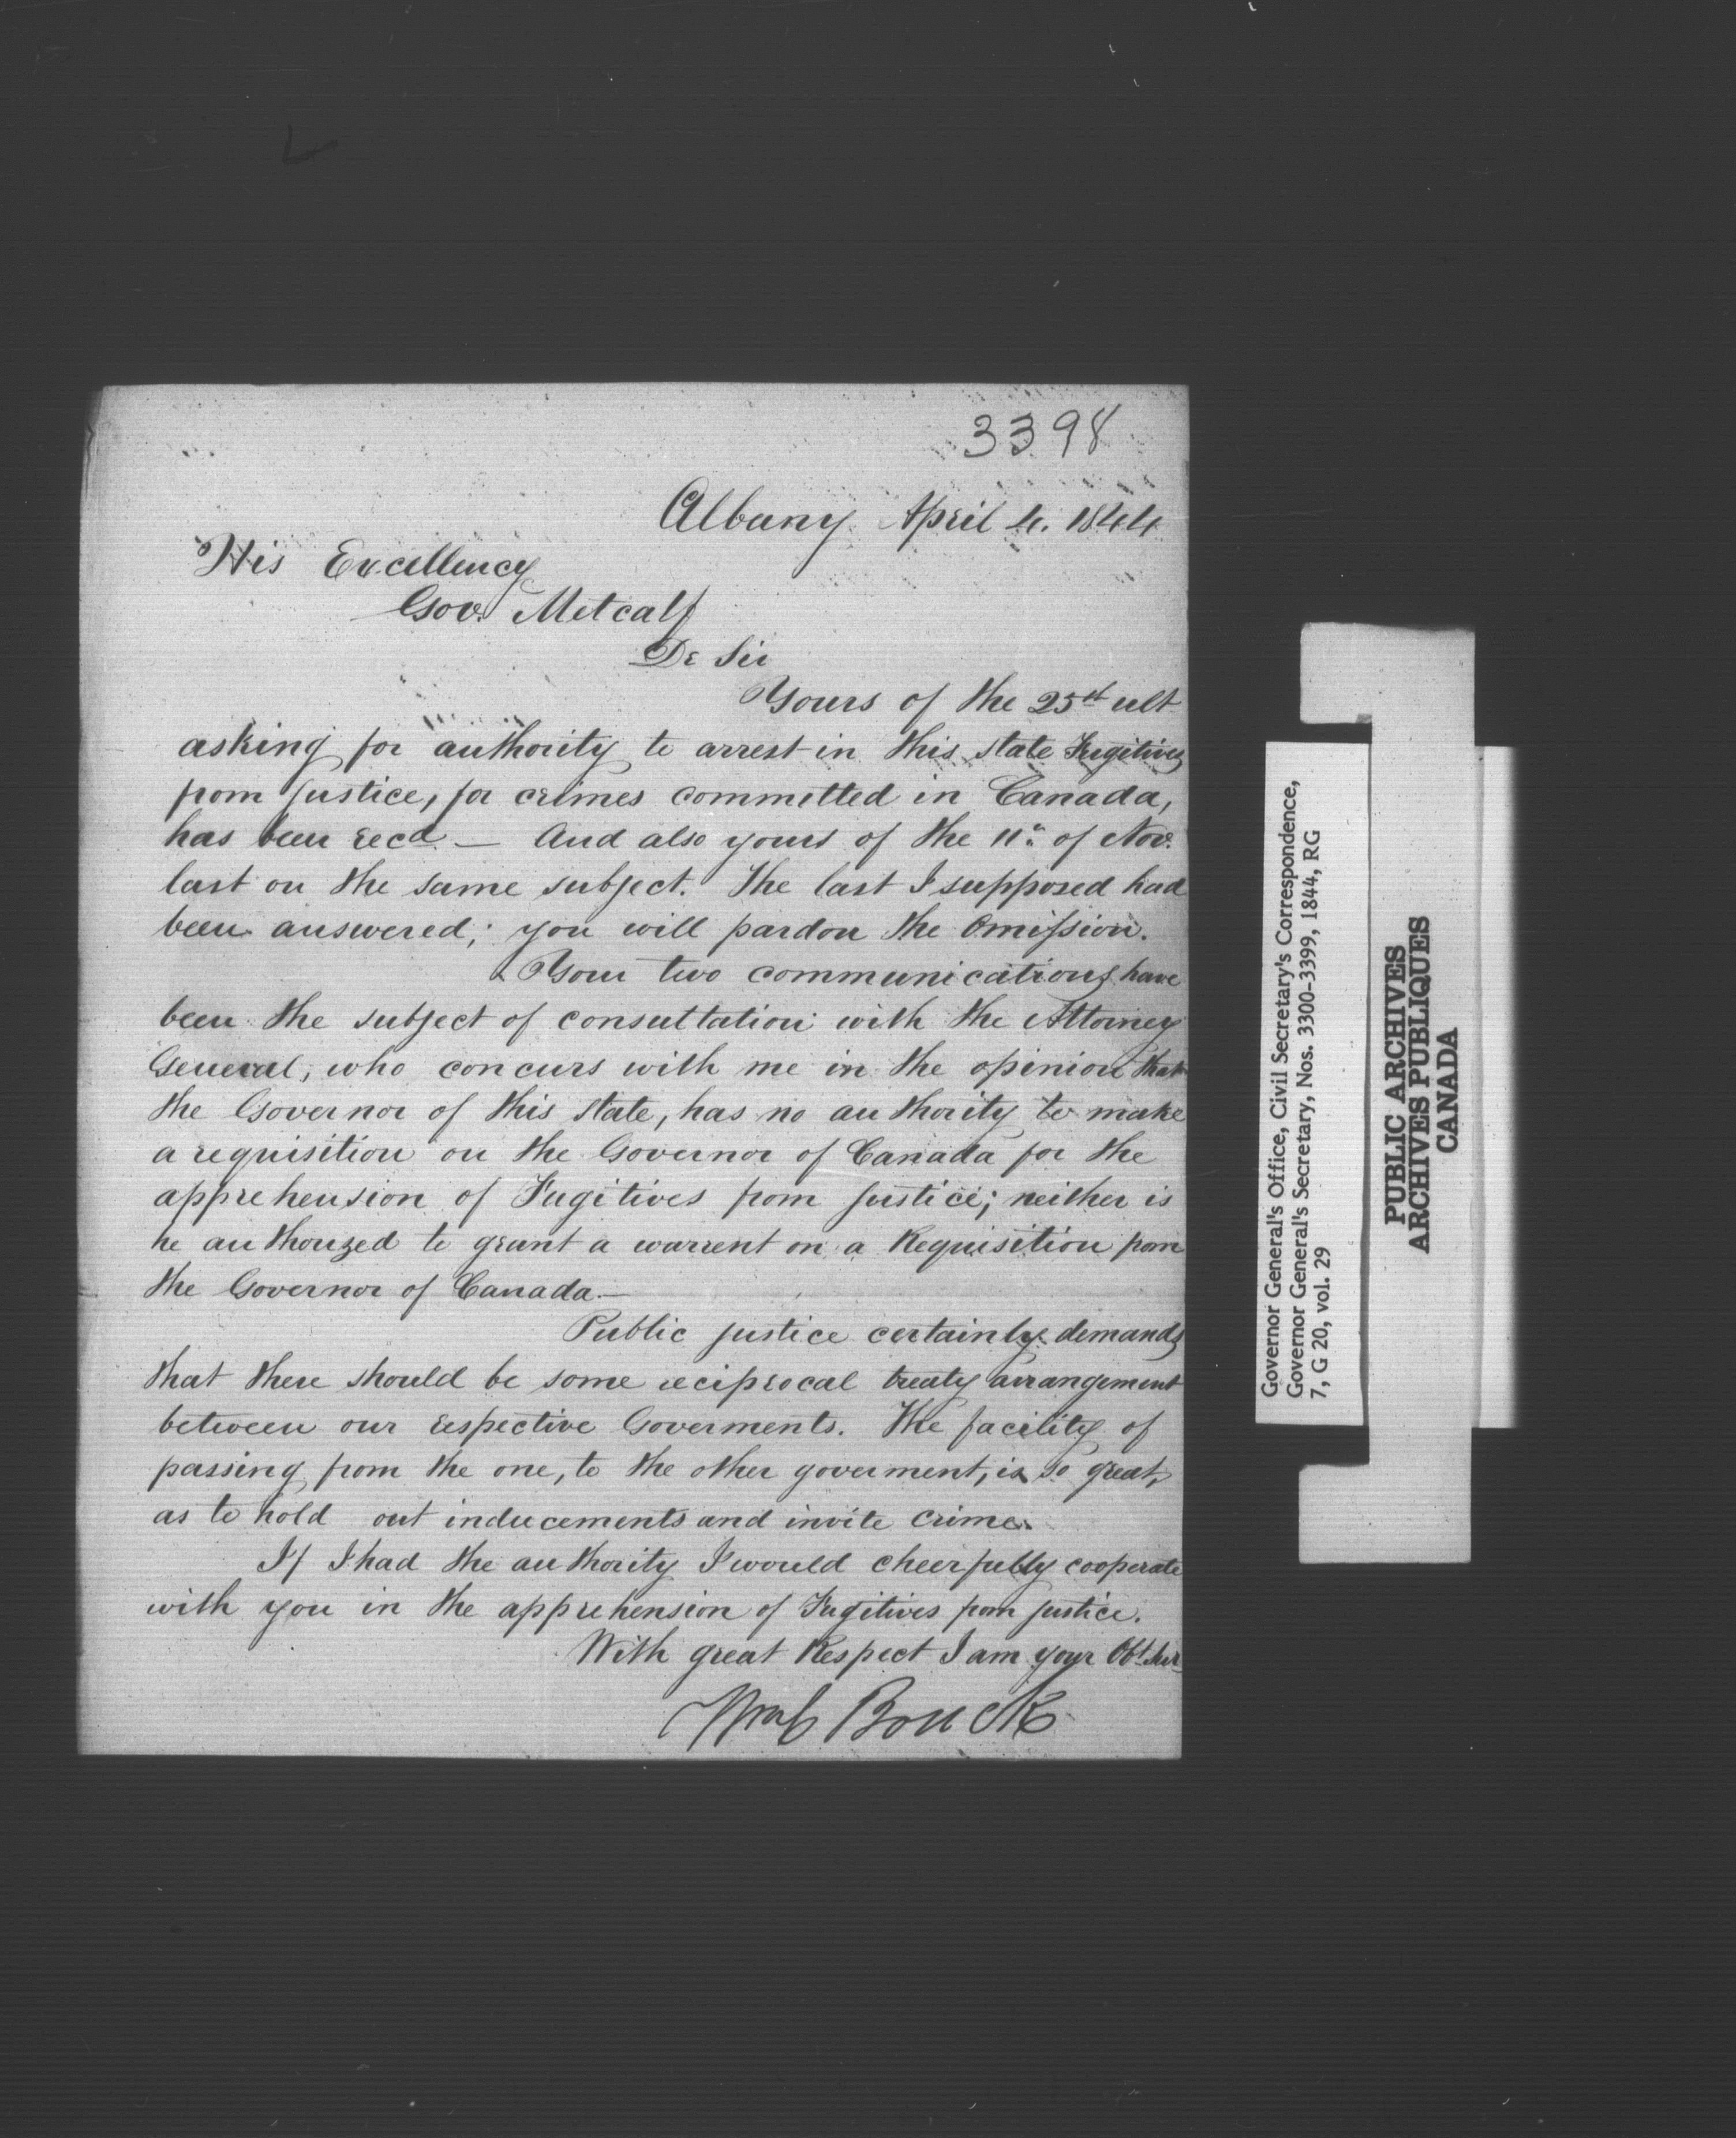 3398
Albany April 4. 1844
His Excellency
Gov. Metcalf
Dr Sir
Yours of the 25th ult
asking for authority to arrest in this state Fugitives
from justice, for crimes committed in Canada,
has been recd — And also yours of the 11th of Nov.
last on the same subject. The last I supposed had
been answered; you will pardon the Omission.
Your two communications have
been the subject of consultation with the Attorney
General, who concurs with me in the opinion that
the Governor of this state, has no authority to make
a requisition on the Governor of Canada for the
apprehension of Fugitives from justice; neither is
he authorized to grant a warrent on a Requisition from
the Governor of Canada.—
Public justice certainly demands
that there should be some reciprocal treaty arrangement
between our respective Goverments. The facility of
passing from the one, to the other goverment, is so great,
as to hold out inducements and invite crime.
If I had the authority I would cheerfully cooperate
with you in the apprehension of Fugitives from justice.
With great Respect I am your Obt. Ser
Wm C Bouck
Governor General's Office, Civil Secretary's Correspondence,
Governor General's Secretary, Nos. 3300-3399, 1844, RG
7, G 20, vol. 29
PUBLIC ARCHIVES
ARCHIVES PUBLIQUES
CANADA